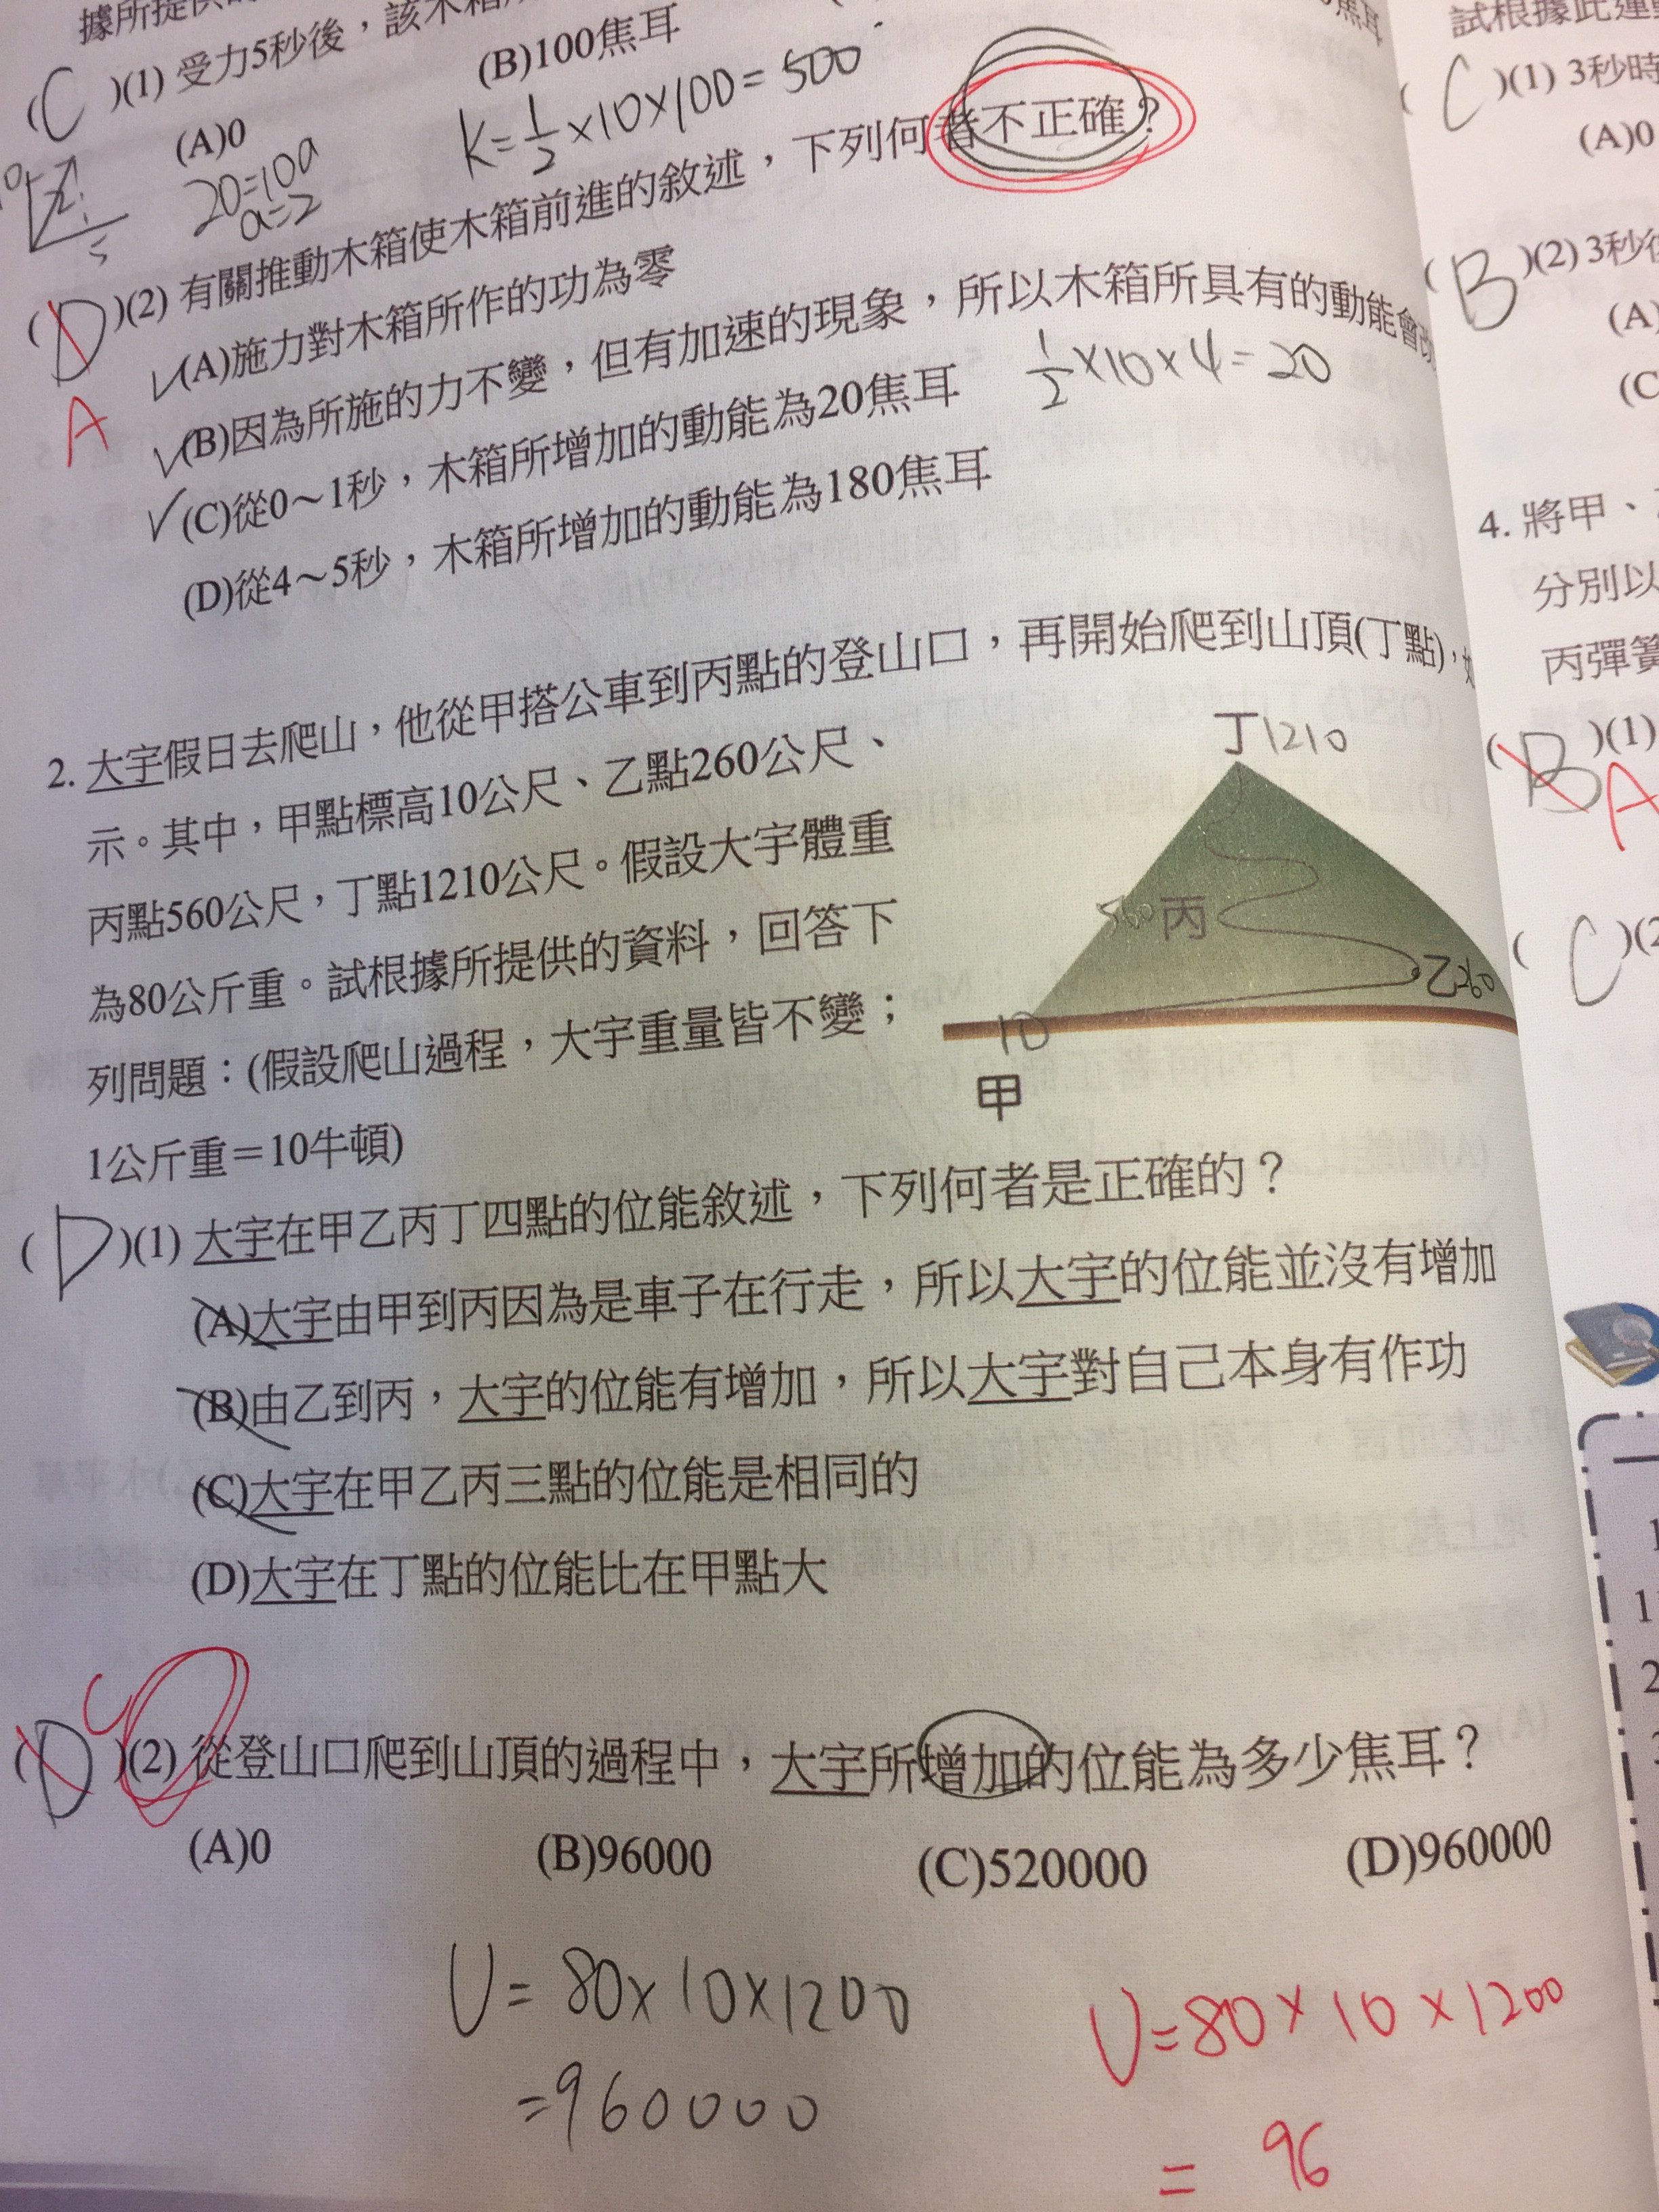 據所提供的
(C)(1) 受力5秒後，該木箱所
(A)0
(B)100焦耳
焦耳
K=½×10×100=500
20=10a
a=2
(D)(2) 有關推動木箱使木箱前進的敘述，下列何者不正確？
A
(A)施力對木箱所作的功為零
(B)因為所施的力不變，但有加速的現象，所以木箱所具有的動能會改
½×10×4=20
(C)從0～1秒，木箱所增加的動能為20焦耳
(D)從4～5秒，木箱所增加的動能為180焦耳
2. 大宇假日去爬山，他從甲搭公車到丙點的登山口，再開始爬到山頂(丁點)，如
示。其中，甲點標高10公尺、乙點260公尺、
丙點560公尺，丁點1210公尺。假設大宇體重
為80公斤重。試根據所提供的資料，回答下
列問題：(假設爬山過程，大宇重量皆不變；
1公斤重＝10牛頓)
丁1210
560丙
乙260
10
甲
(D)(1) 大宇在甲乙丙丁四點的位能敘述，下列何者是正確的？
(A)大宇由甲到丙因為是車子在行走，所以大宇的位能並沒有增加
(B)由乙到丙，大宇的位能有增加，所以大宇對自己本身有作功
(C)大宇在甲乙丙三點的位能是相同的
(D)大宇在丁點的位能比在甲點大
C
(D)(2) 從登山口爬到山頂的過程中，大宇所增加的位能為多少焦耳？
(A)0 (B)96000 (C)520000 (D)960000
U=80×10×1200
=960000
U=80×10×1200
= 96
試根據此運動
(C)(1) 3秒時
(A)0
(B)(2) 3秒後
(A)
(C
4. 將甲、
分別以
丙彈簧
(B)(1)
A
(C)(2
1
1
2